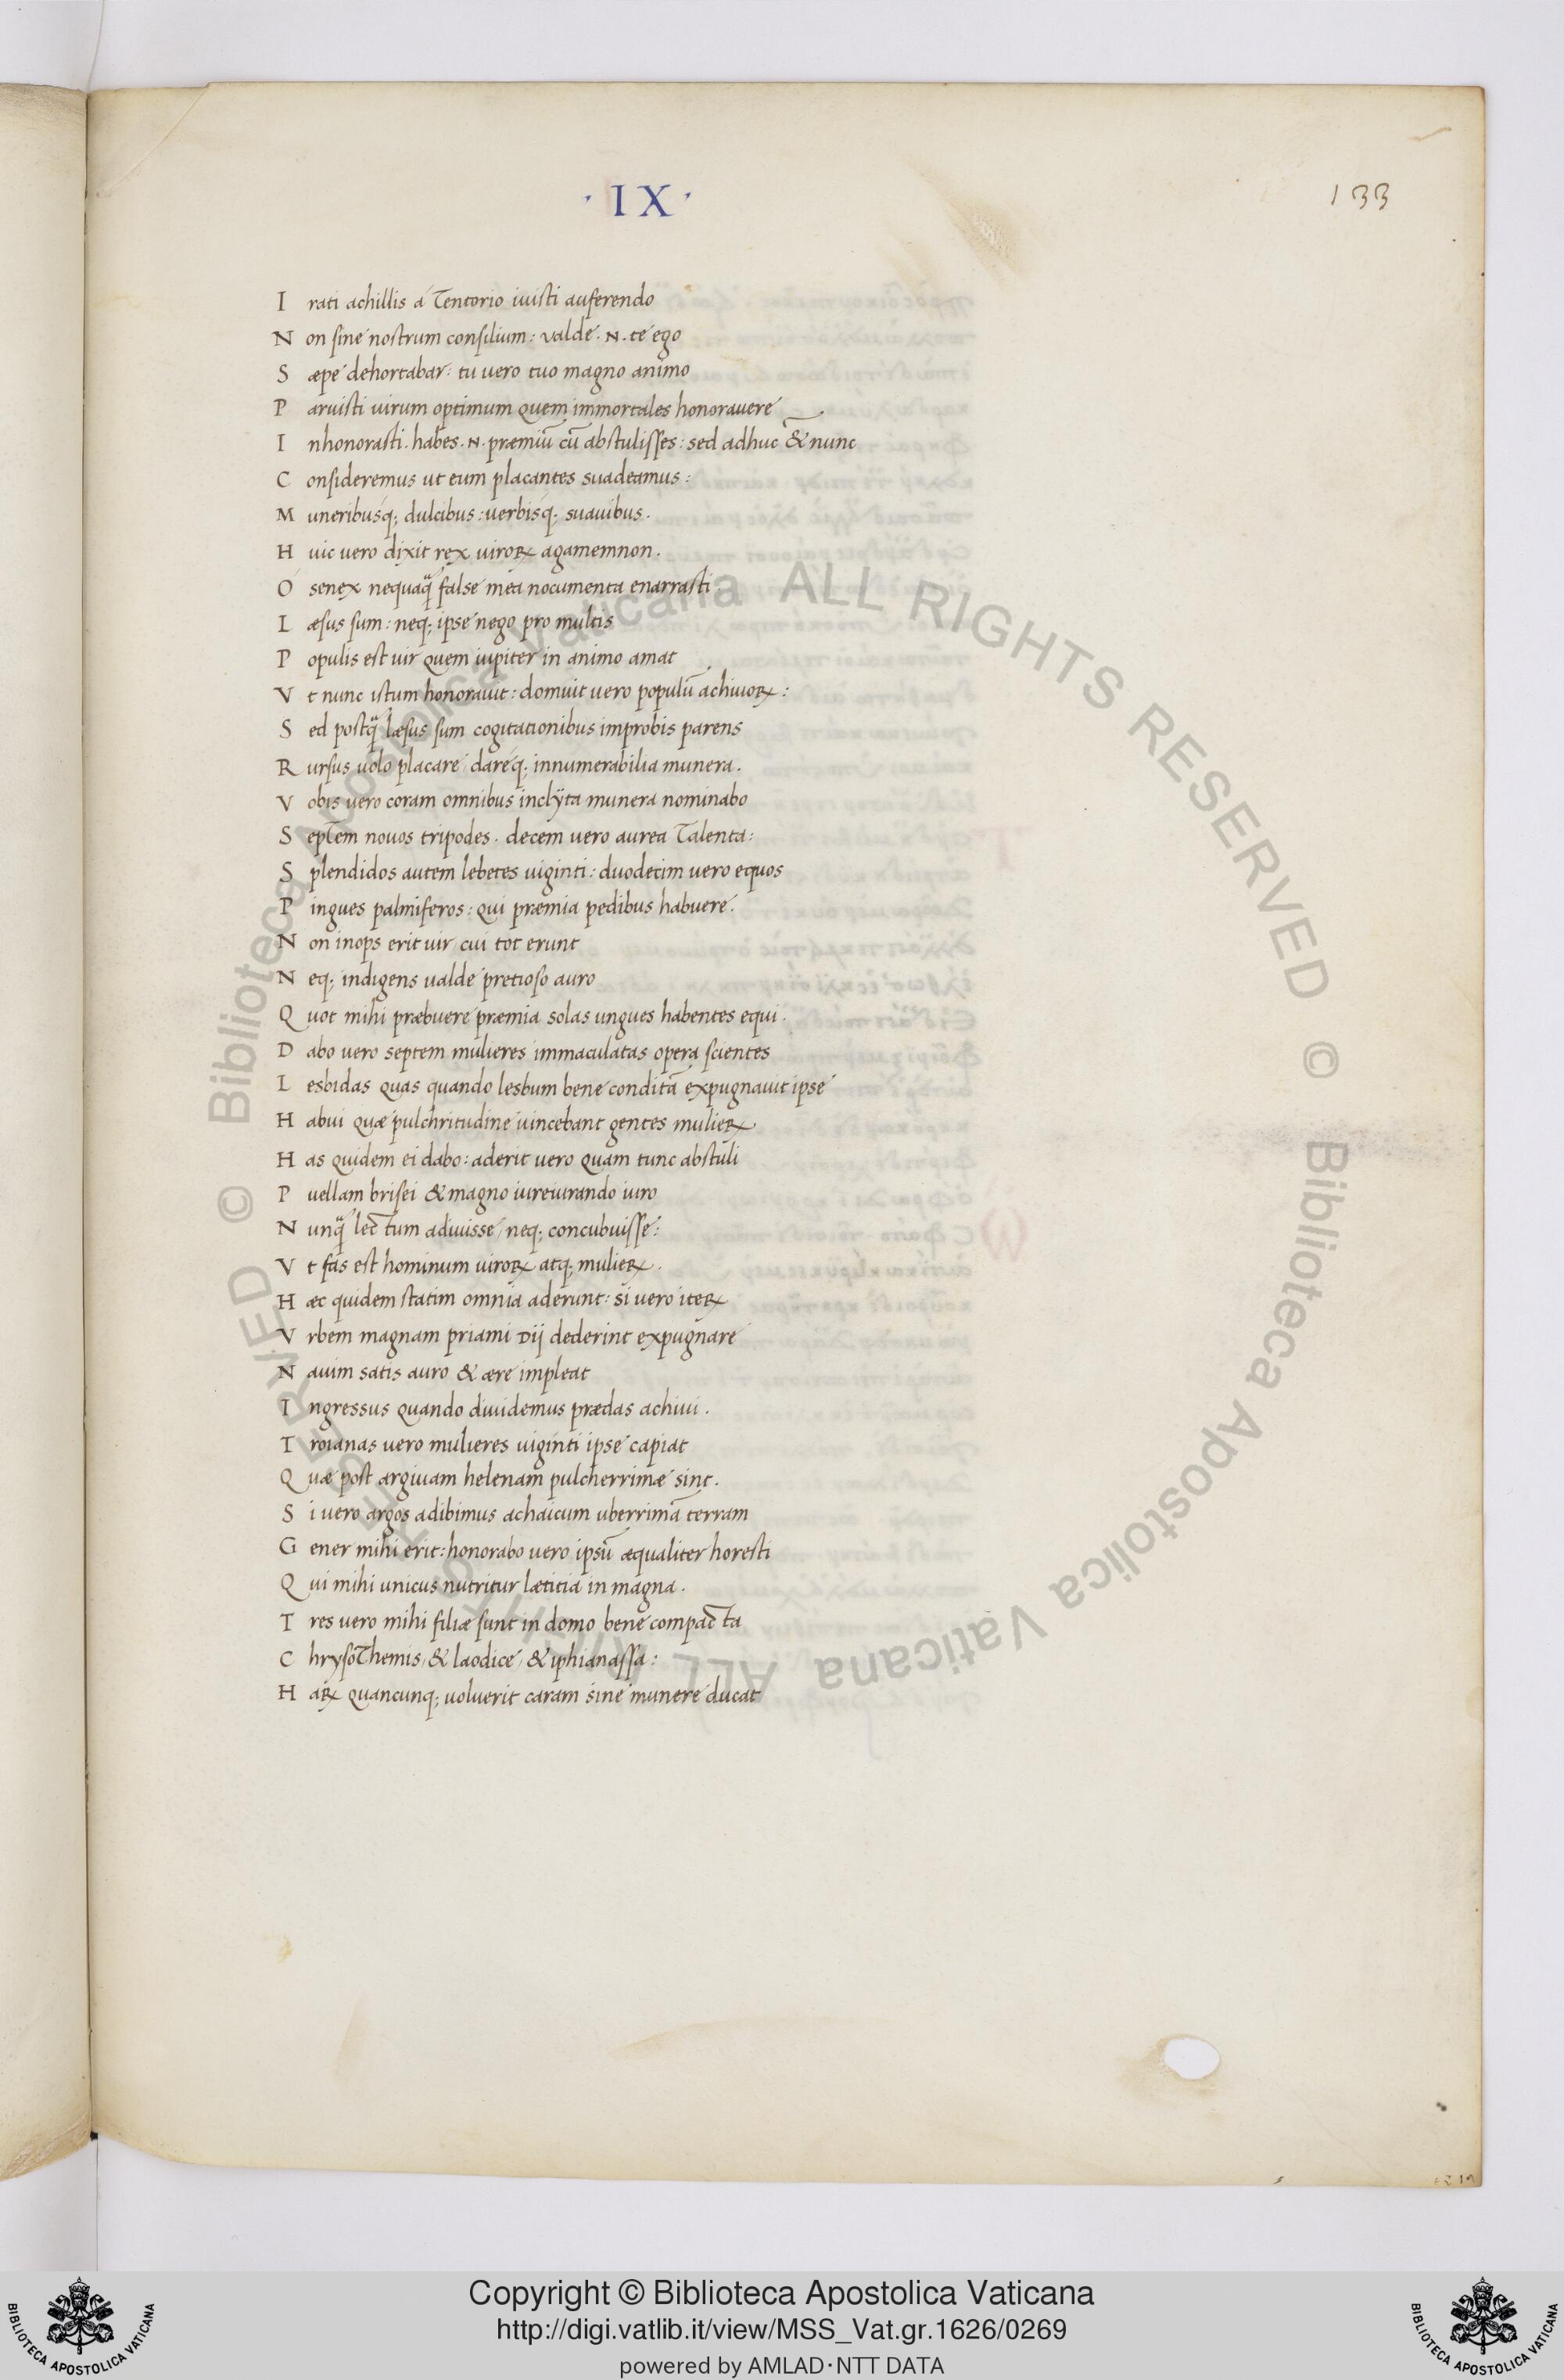 · IX ·
133
I rati achillis á Tentorio iuisti auferendo
N on sine nostrum consilium: valde .N. te ego
S æpe dehortabar: tu uero tuo magno animo
P aruisti uirum optimum quem immortales honorauere
I nhonorasti. habes .N. præmiū cū abstulisses: sed adhuc & nunc
C onsideremus ut eum placantes suadeamus:
M uneribusq; dulcibus: uerbisq; suauibus.
H uic uero dixit rex uiroꝝ agamemnon.
Ó senex nequaq̃ false mea nocumenta enarrasti
L æsus sum: neq; ipse nego pro multis
P opulis est uir quem iupiter in animo amat
V t nunc istum honorauit: domuit uero populū achiuoꝝ:
S ed postq̃ læsus sum cogitationibus improbis parens
R ursus uolo placare / dareq; innumerabilia munera.
V obis uero coram omnibus inclÿta munera nominabo
S epTem nouos tripodes. decem uero aurea Talenta:
S plendidos autem lebetes uiginti: duodecim uero equos
P ingues palmiferos: qui præmia pedibus habuere.
N on inops erit uir / cui tot erunt
N eq; indigens ualde pretioso auro
Q uot mihi præbuere præmia solas ungues habentes equi.
D abo uero septem mulieres immaculatas opera scientes
L esbidas quas quando lesbum bene conditā expugnauit ipse
H abui quæ pulchritudine uincebant gentes mulieꝝ
H as quidem ei dabo: aderit uero quam tunc abstuli
P uellam brisei & magno iureiurando iuro
N unq̃ lectum adiuisse / neq; concubuisse:
V t fas est hominum uiroꝝ atq; mulieꝝ.
H æc quidem statim omnia aderunt: si uero iteꝝ
V rbem magnam priami Dij dederint expugnare
N auim satis auro & ære impleat
I ngressus quando diuidemus prædas achiui.
T roianas uero mulieres uiginti ipse capiat
Q uæ post argiuam helenam pulcherrimæ sint.
S i uero argos adibimus achaicum uberrimā terram
G ener mihi erit: honorabo uero ipsū æqualiter horesti
Q ui mihi unicus nutritur lætitia in magna.
T res uero mihi filiæ sunt in domo bene compacta
C hrysoThemis, & laodice, & iphianassa:
H aꝝ quancunq; uoluerit caram sine munere ducat
© Biblioteca Apostolica Vaticana ALL RIGHTS RESERVED © Biblioteca Apostolica Vaticana ALL RIGHTS RESERVED
Copyright © Biblioteca Apostolica Vaticana
http://digi.vatlib.it/view/MSS_Vat.gr.1626/0269
powered by AMLAD·NTT DATA
BIBLIOTECA APOSTOLICA VATICANA
BIBLIOTECA APOSTOLICA VATICANA